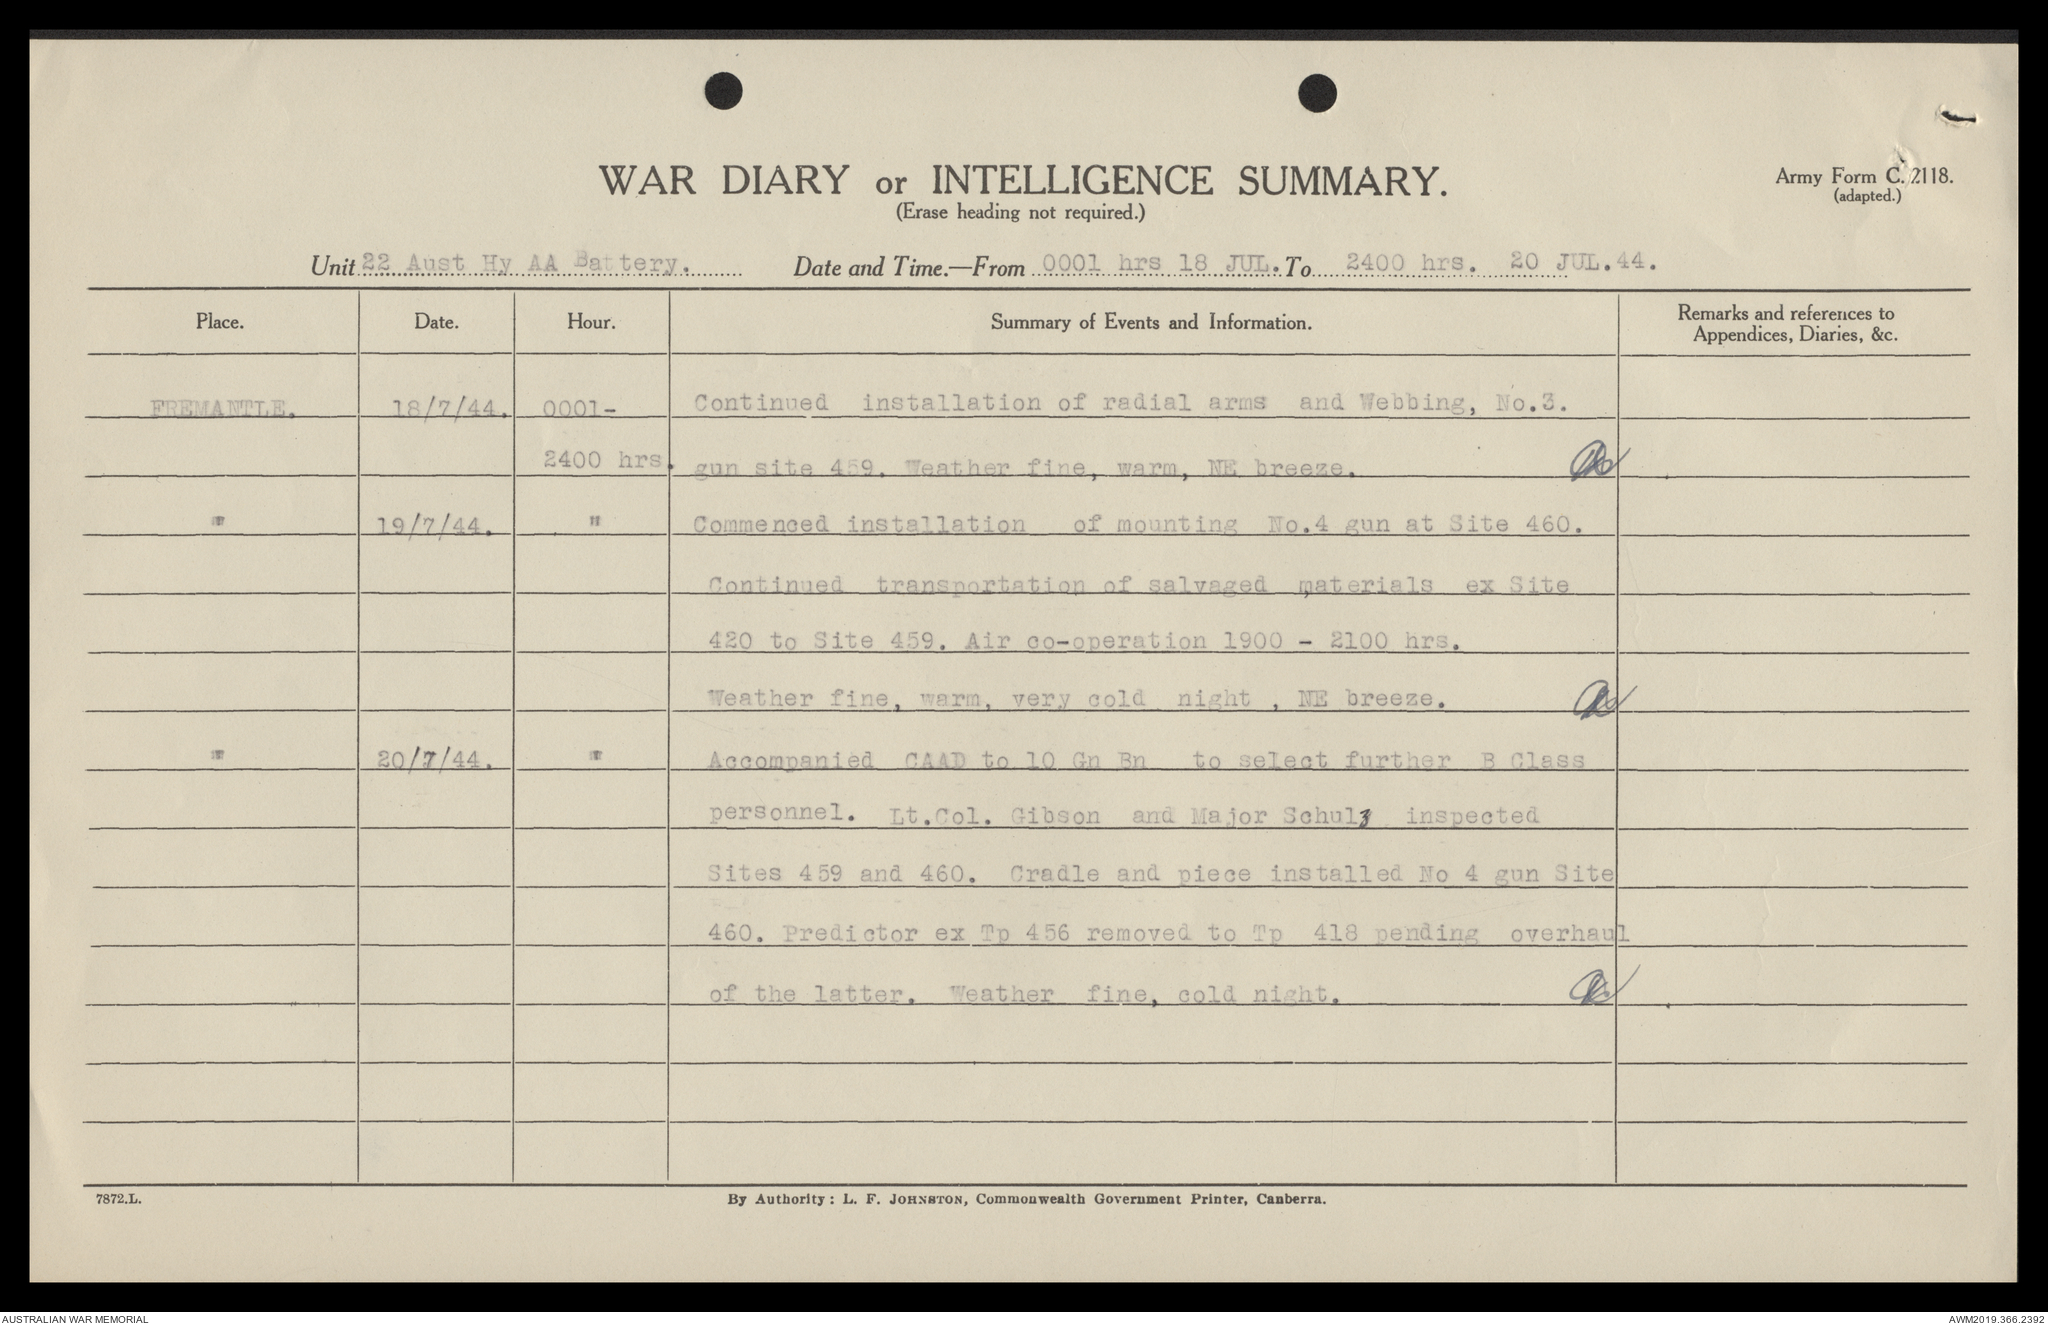 WAR DIARY or INTELLIGENCE SUMMARY.
(Erase heading not required.)
Army Form C. 2118.
(adapted.)
Unit 22 Aust Hy AA Battery. Date and Time.—From 0001 hrs 18 JUL. To 2400 hrs. 20 JUL.44.
Place. Date. Hour. Summary of Events and Information. Remarks and references to Appendices, Diaries, &c.
FREMANTLE. 18/7/44. 0001- Continued installation of radial arms and Webbing, No.3.
2400 hrs. gun site 459. Weather fine, warm, NE breeze.
" 19/7/44. " Commenced installation of mounting No.4 gun at Site 460.
Continued transportation of salvaged materials ex Site
420 to Site 459. Air co-operation 1900 - 2100 hrs.
Weather fine, warm, very cold night , NE breeze.
" 20/7/44. " Accompanied CAAD to 10 Gn Bn to select further B Class
personnel. Lt.Col. Gibson and Major Schulz inspected
Sites 459 and 460. Cradle and piece installed No 4 gun Site
460. Predictor ex Tp 456 removed to Tp 418 pending overhaul
of the latter. Weather fine, cold night.
7872.L.
By Authority: L. F. JOHNSTON, Commonwealth Government Printer, Canberra.
AUSTRALIAN WAR MEMORIAL
AWM2019.366.2392